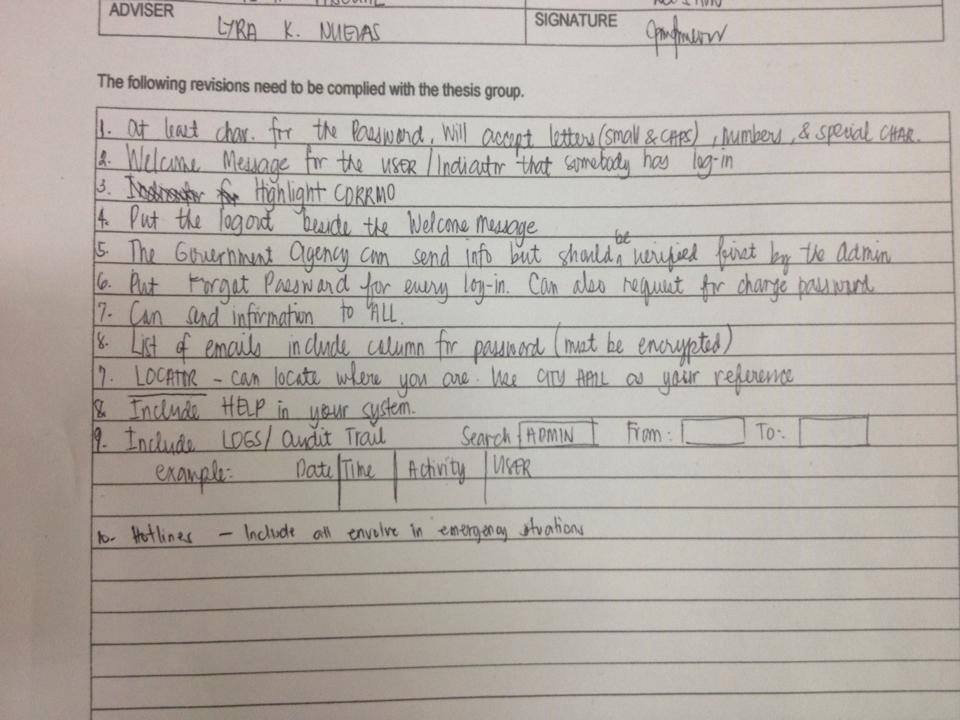 ADVISER LYRA K. NUEVAS SIGNATURE
The following revisions need to be complied with the thesis group.
1. At least char. for the Password, Will accept letters (small & CAPS), numbers, & special CHAR.
2. Welcome Message for the USER / Indicator that somebody has log-in
3. Highlight CDRRMO
4. Put the logout beside the Welcome Message
5. The Government Agency can send info but should be verified first by the Admin
6. Put Forgot Password for every log-in. Can also request for change password
7. Can send information to ALL.
8. List of emails include column for password (must be encrypted)
7. LOCATOR - can locate where you are. Use CITY HALL as your reference
8. Include HELP in your system.
9. Include LOGS / Audit Trail Search ADMIN From: To:
example: Date Time Activity USER
10. Hotlines - Include all envolve in emergency situations